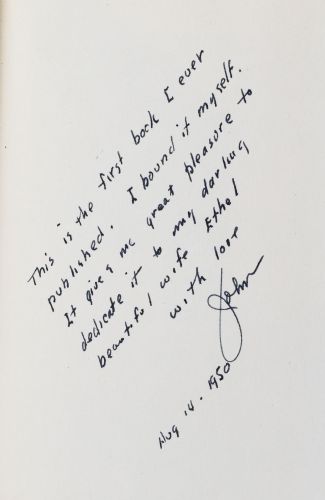 This is the first book I ever
published. I bound it myself.
It gives me great pleasure to
dedicate it to my darling
beautiful wife Ethel
with love
John
Aug 14 - 1950